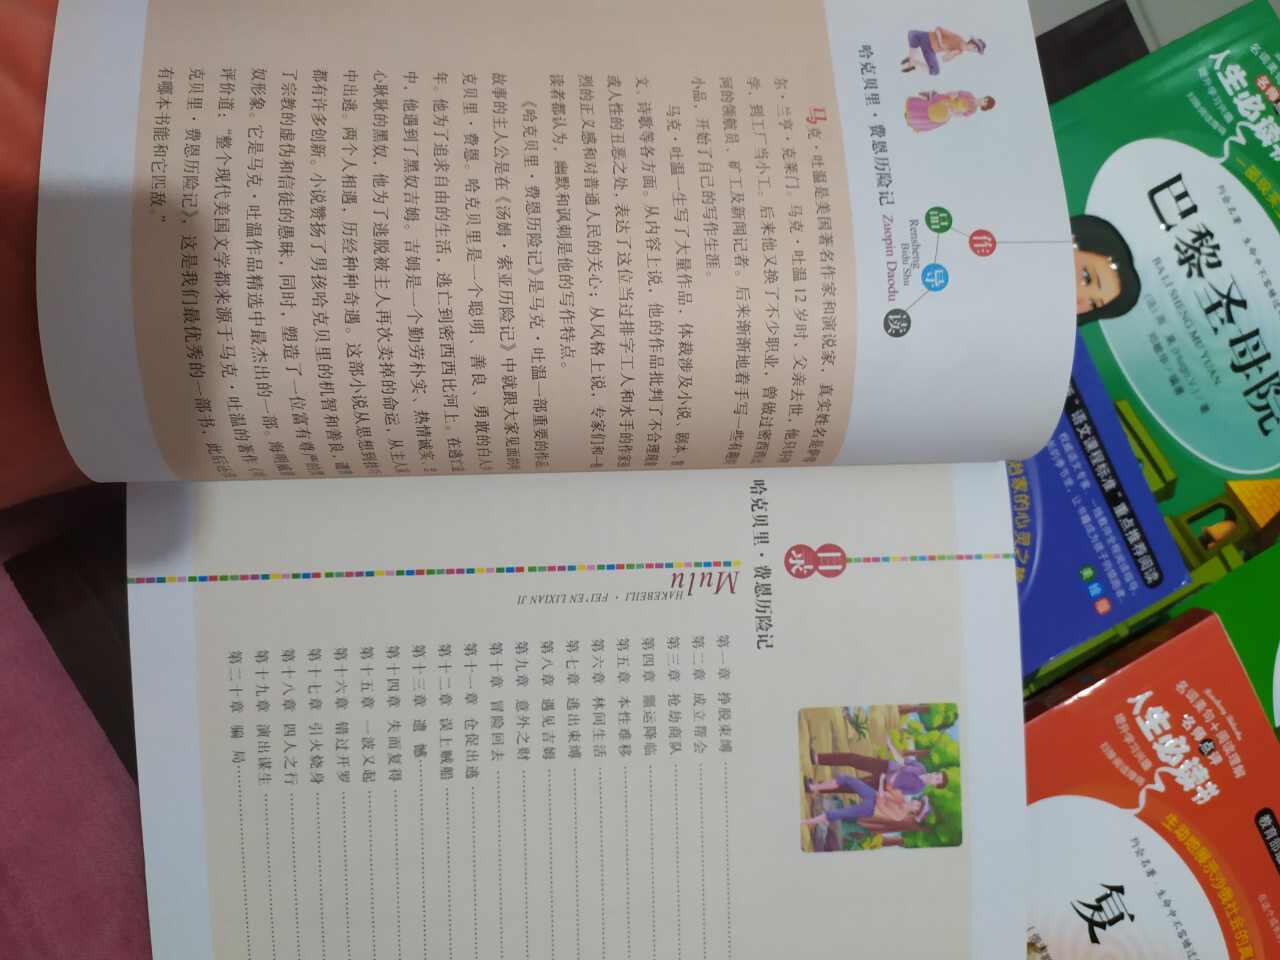 哈克贝里·费恩历险记
作品导读
Rensheng
Bidu Shu
Zuopin Daodu
马克·吐温是美国著名作家和演说家，真实姓名是
尔·兰亨·克莱门。马克·吐温12岁时，父亲去世，他只好
学，到工厂当小工。后来他又换了不少职业，曾做过密西西
河的领航员、矿工及新闻记者。后来渐渐地着手写一些有趣
小品，开始了自己的写作生涯。
马克·吐温一生写了大量作品，体裁涉及小说、剧本、
文、诗歌等各方面。从内容上说，他的作品批判了不合理现象
或人性的丑恶之处，表达了这位当过排字工人和水手的作家
烈的正义感和对普通人民的关心；从风格上说，专家们和一
读者都认为，幽默和讽刺是他的写作特点。
《哈克贝里·费恩历险记》是马克·吐温一部重要的作品
故事的主人公是在《汤姆·索亚历险记》中就跟大家见面的
克贝里·费恩。哈克贝里是一个聪明、善良、勇敢的白人
年。他为了追求自由的生活，逃亡到密西西比河上。在逃亡
中，他遇到了黑奴吉姆。吉姆是一个勤劳朴实、热情诚实、
心耿耿的黑奴，他为了逃脱被主人再次卖掉的命运，从主人
中出逃。两个人相遇，历经种种奇遇。这部小说从思想到
都有许多创新。小说赞扬了男孩哈克贝里的机智和善良，谴
了宗教的虚伪和信徒的愚昧，同时，塑造了一位富有尊严的
奴形象。它是马克·吐温作品精选中最杰出的一部。海明威
评价道：“整个现代美国文学都来源于马克·吐温的著作《
克贝里·费恩历险记》，这是我们最优秀的一部书，此后
有哪本书能和它匹敌。”
哈克贝里·费恩历险记
目录
Mulu
HAKEBEILI·FEI'EN LIXIAN JI
第一章 挣脱束缚
第二章 成立帮会
第三章 抢劫商队
第四章 噩运降临
第五章 本性难移
第六章 林间生活
第七章 逃出束缚
第八章 遇见吉姆
第九章 意外之财
第十章 冒险回去
第十一章 仓促出逃
第十二章 误上贼船
第十三章 遗憾
第十四章 失而复得
第十五章 一波又起
第十六章 错过开罗
第十七章 引火烧身
第十八章 四人之行
第十九章 演出谋生
第二十章 骗局
人生必读书
巴黎圣母院
BA LI SHENG MU YUAN
“语文课程标准”重点推荐阅读
美绘版
名词美句+阅读理解
名师点评
人生必读书
复